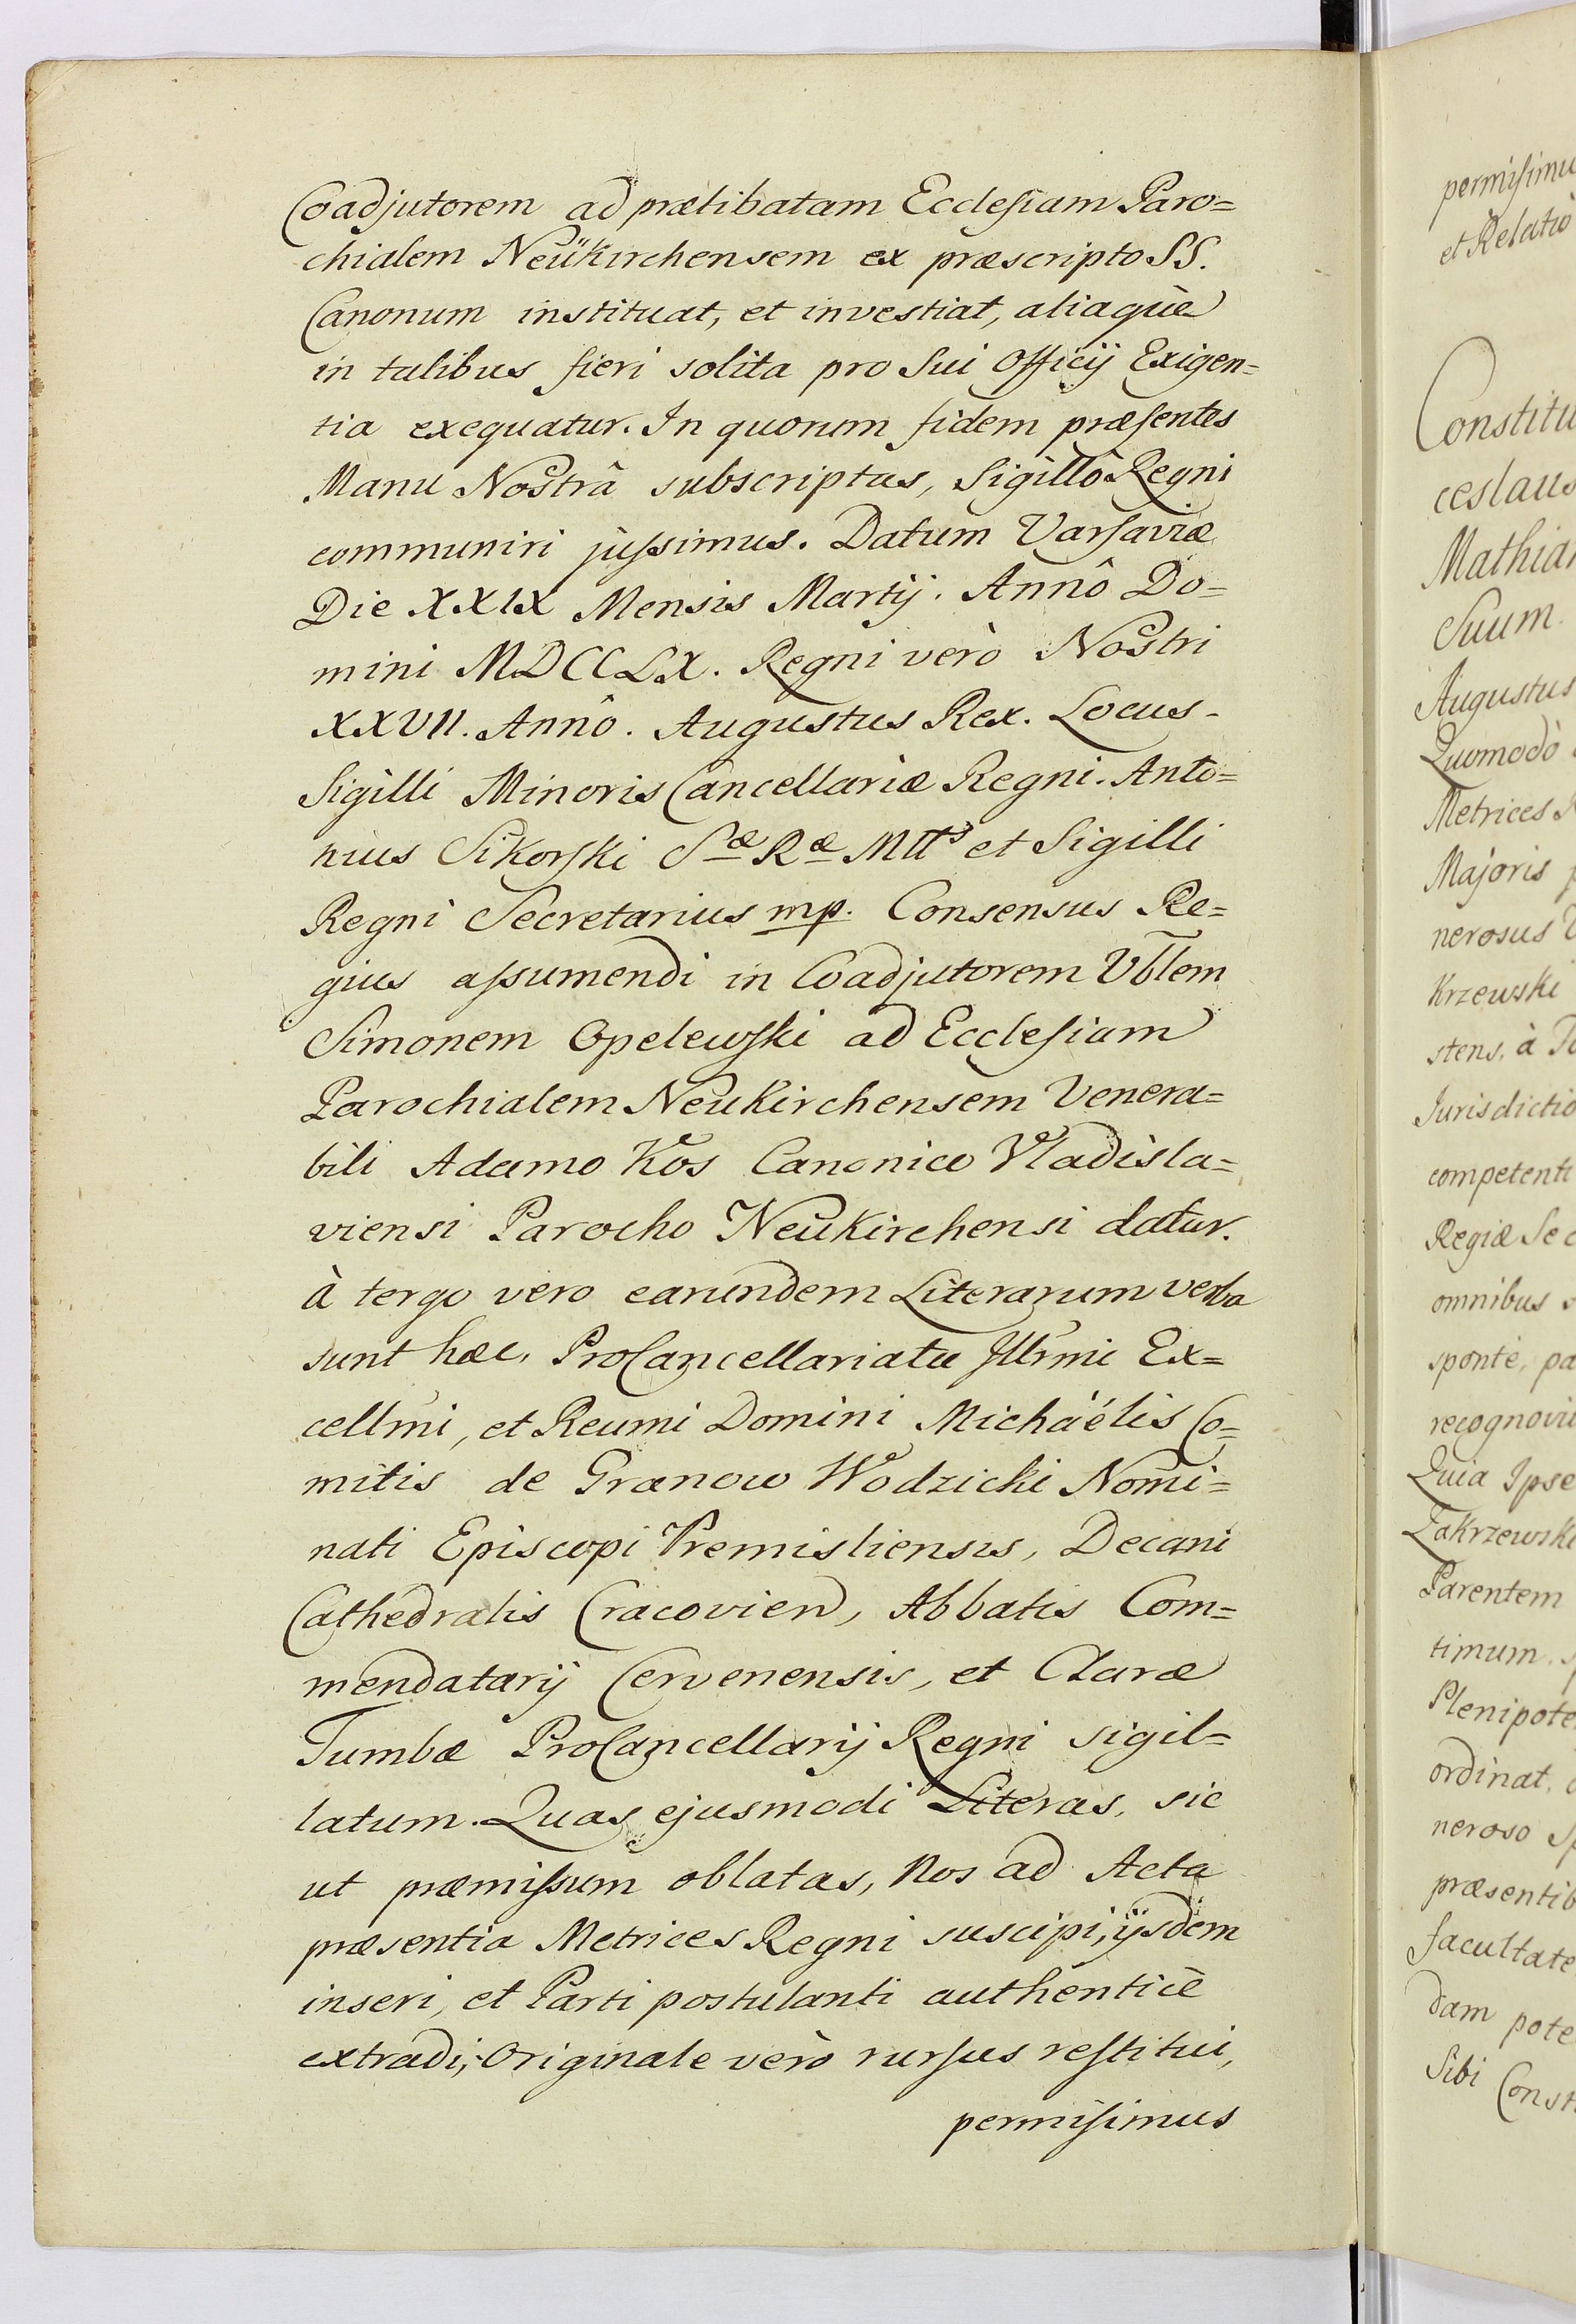 Coadjutorem ad prætibatam Ecclesiam Paro=
chialem Neükirchensem ex præscripto SS.
Canonum instituat, et investiat, aliaquè
in talibus fieri solita pro Sui Officij Exigen=
tia exequatur. In quorum fidem præsentes
Manu Nostrâ subscriptas, Sigillô Regni
communiri jussimus. Datum Varsaviæ
Die XXIX Mensis Martij. Annô Do=
mini MDCCLX. Regni verò Nostri
XXVII. Annô. Augustus Rex. Locus-
Sigilli Minoris Cancellariæ Regni. Anto=
nius Sikorski Sæ Ræ Mttis et Sigilli
Regni Secretarius mp. Consensus Re=
gius assumendi in Coadjutorem Vblem
Simonem Opelewski ad Ecclesiam
Parochialem Neukirchensem Venera=
bili Adamo Kos Canonico Vladisla=
viensi Parocho Neukirchensi datur.
à tergo vero earundem Literarum verba
sunt hæc, ProCancellariatu Illrmi Ex=
cellmi, et Reumi Domini Michäélis Co=
mitis de Granow Wodzicki Nomi=
nati Episcopi Premisliensis, Decani
Cathedralis Cracovien, Abbatis Com=
mendatarij Cervenensis, et Claræ
Tumbæ ProCancellarij Regni sigil=
latum. Quas ejusmodi Literas, sic
ut præmissum oblatas, Nos ad Acta
præsentia Metrices Regni suscipi, ijsdem
inseri, et Parti postulanti authenticè
extradi, Originale verò rursus restitui,
permisimus
permisimu
et Relatio
Constitu
ceslaus
Mathia
Suum
Augustus
Quomodò
Metrices
Majoris
nerosus
Krzewski
stens, à
Jurisdictio
competenti
Regiæ Se
omnibus
sponte, pa
recognovi
Quia Ipse
Zakrzewski
Parentem
timum
Plenipote
ordinat,
neroso
præsentib
facultate
dam pote
Sibi Const